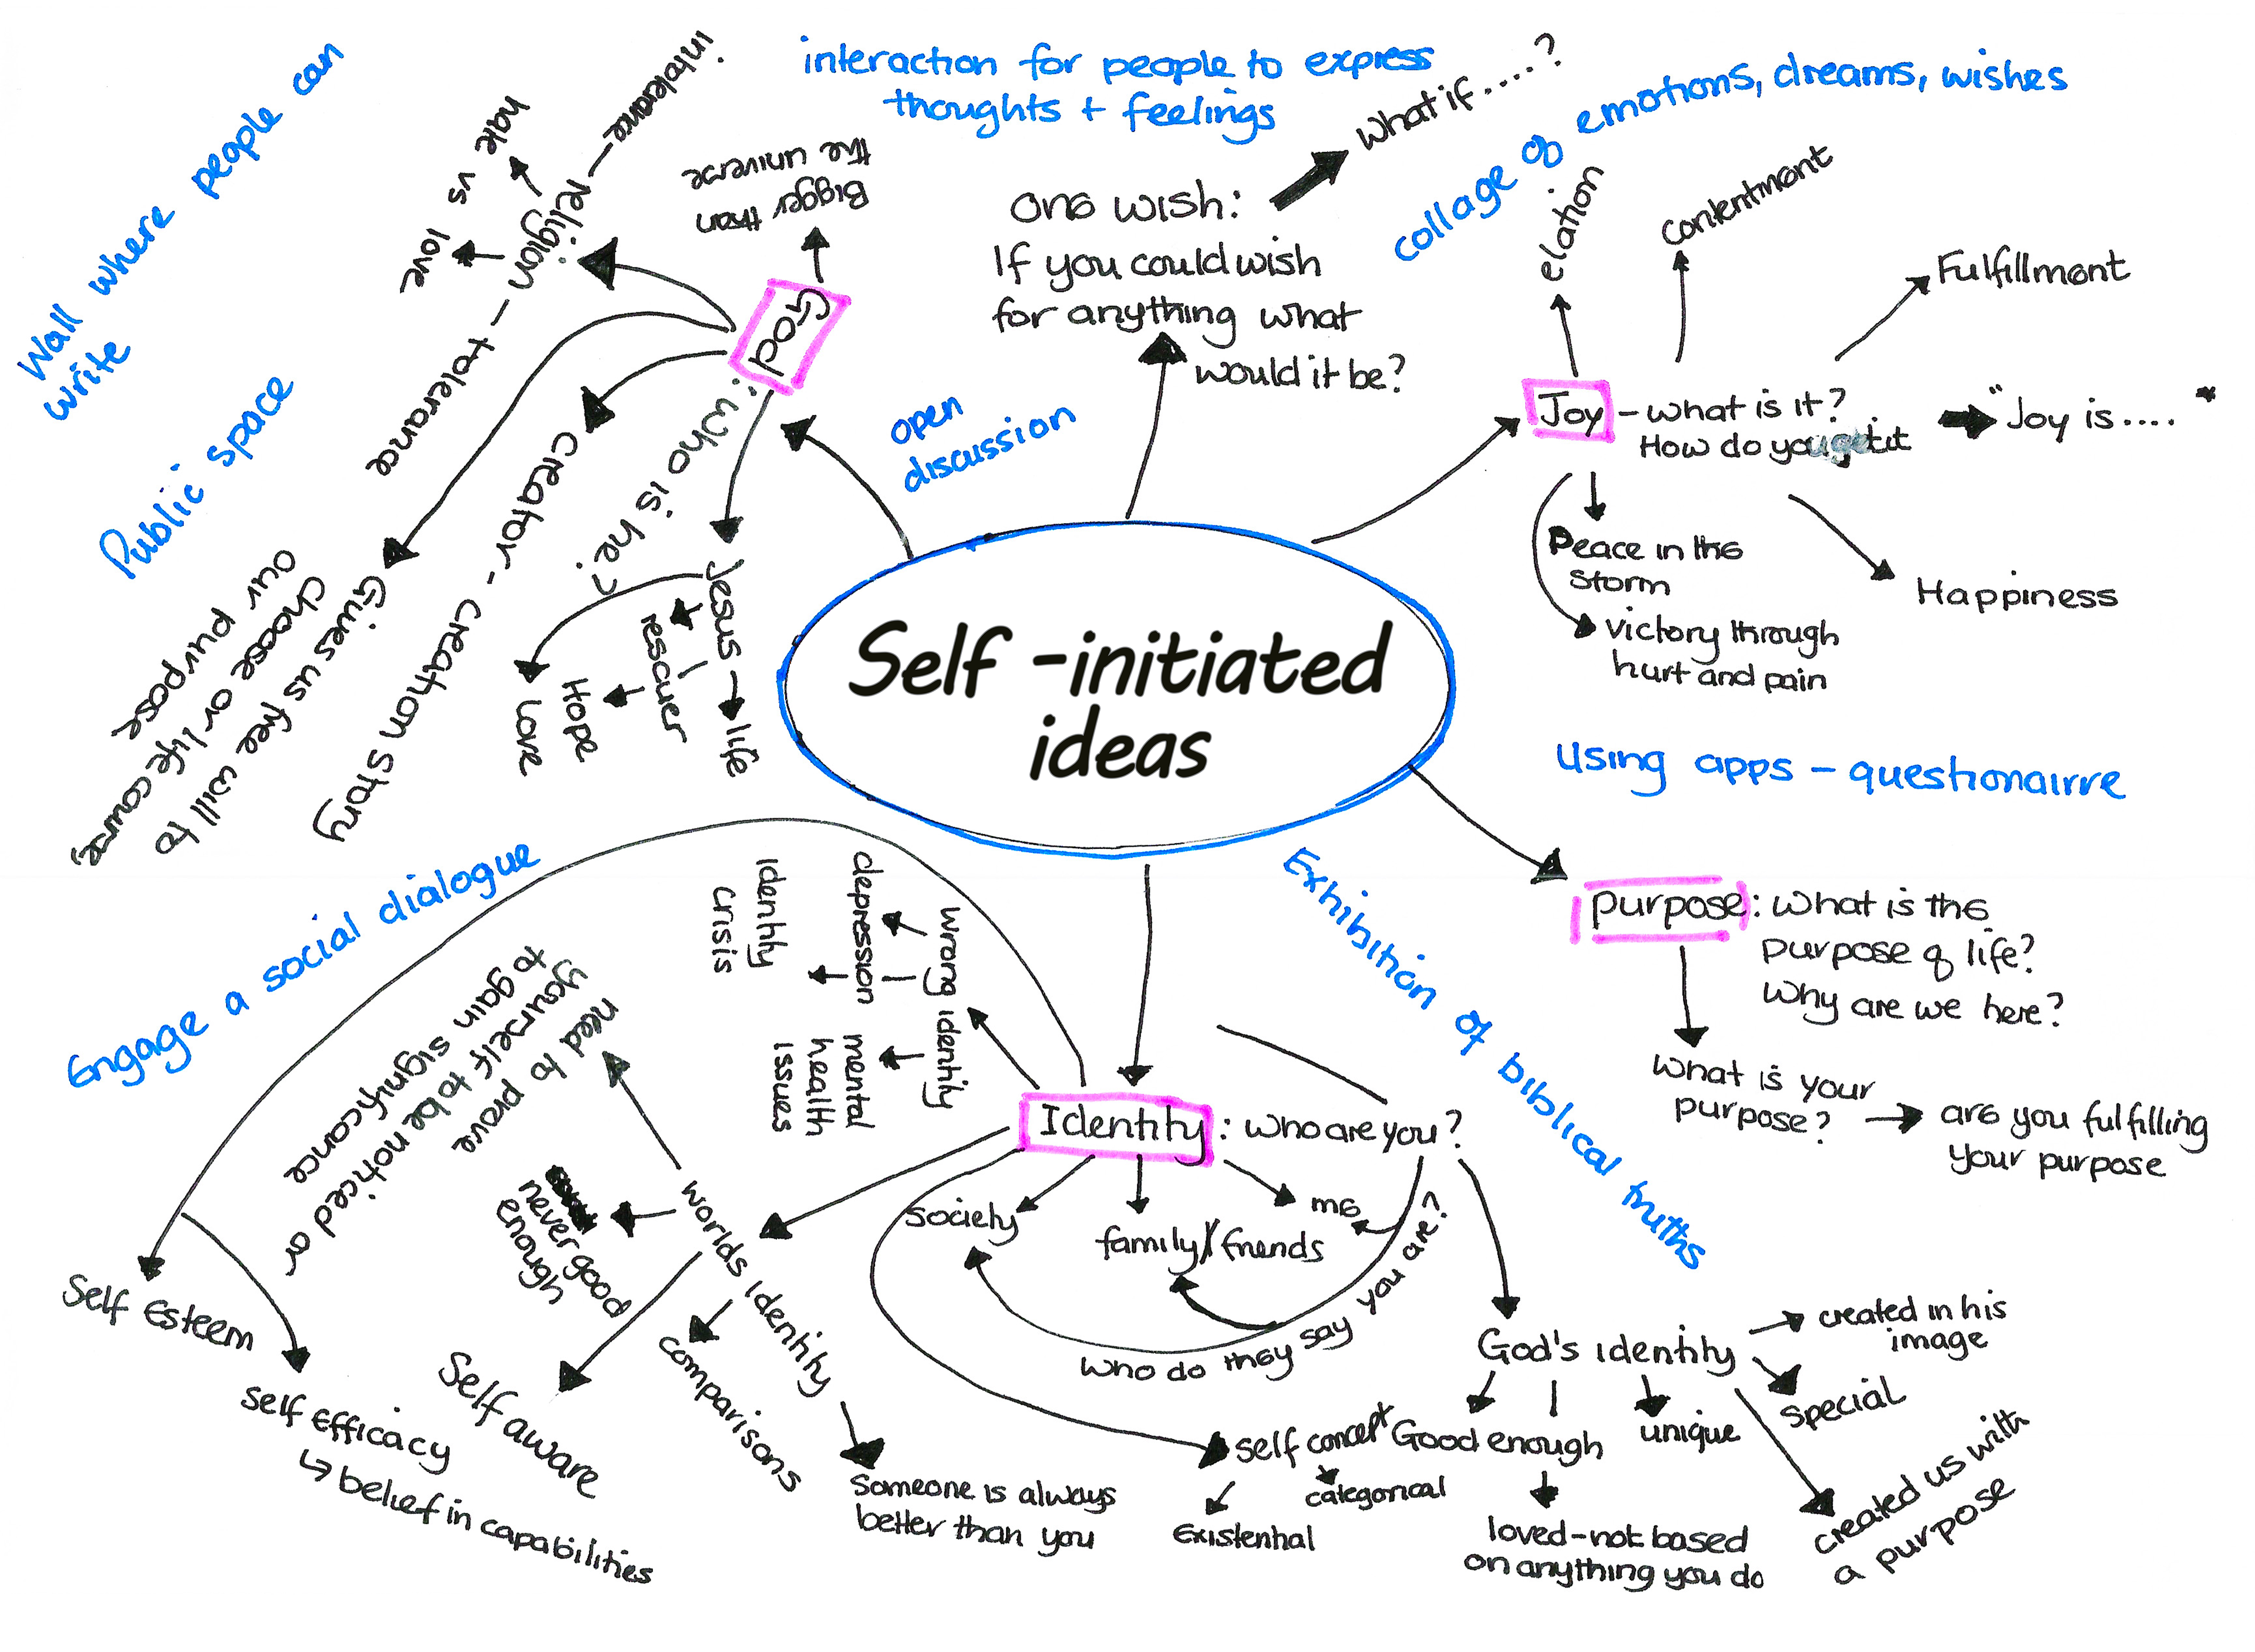 Self -initiated
ideas
Wall where people can
write
Public space
interaction for people to express
thoughts + feelings
collage of emotions, dreams, wishes
open
discussion
using apps - questionairre
Engage a social dialogue
Exhibition of biblical truths
God: who is he?
Bigger than
the universe
intolerance - religion - tolerance
hate vs love
Gives us free will to
choose or life course,
our purpose
creator - creation story
Jesus
life
rescuer
Hope
Love
One wish:
If you could wish
for anything what
would it be?
What if.....?
Joy - what is it?
How do you get it
"Joy is .... "
elation
Contentment
Fulfillment
Happiness
Peace in the
storm
victory through
hurt and pain
purpose: What is the
purpose of life?
Why are we here?
What is your
purpose?
are you fulfilling
your purpose
Identity: who are you?
wrong identity
depression
Identity
crisis
mental
health
issues
society
family/friends
me
who do they say you are?
worlds identity
need to prove
yourself to be noticed or
to gain significance
never good
enough
Self aware
comparisons
Someone is always
better than you
Self Esteem
self EFFicacy
↳ belief in capabilities
self concept
Existential
categorical
God's identity
created in his
image
special
unique
Good enough
loved-not based
on anything you do
created us with
a purpose